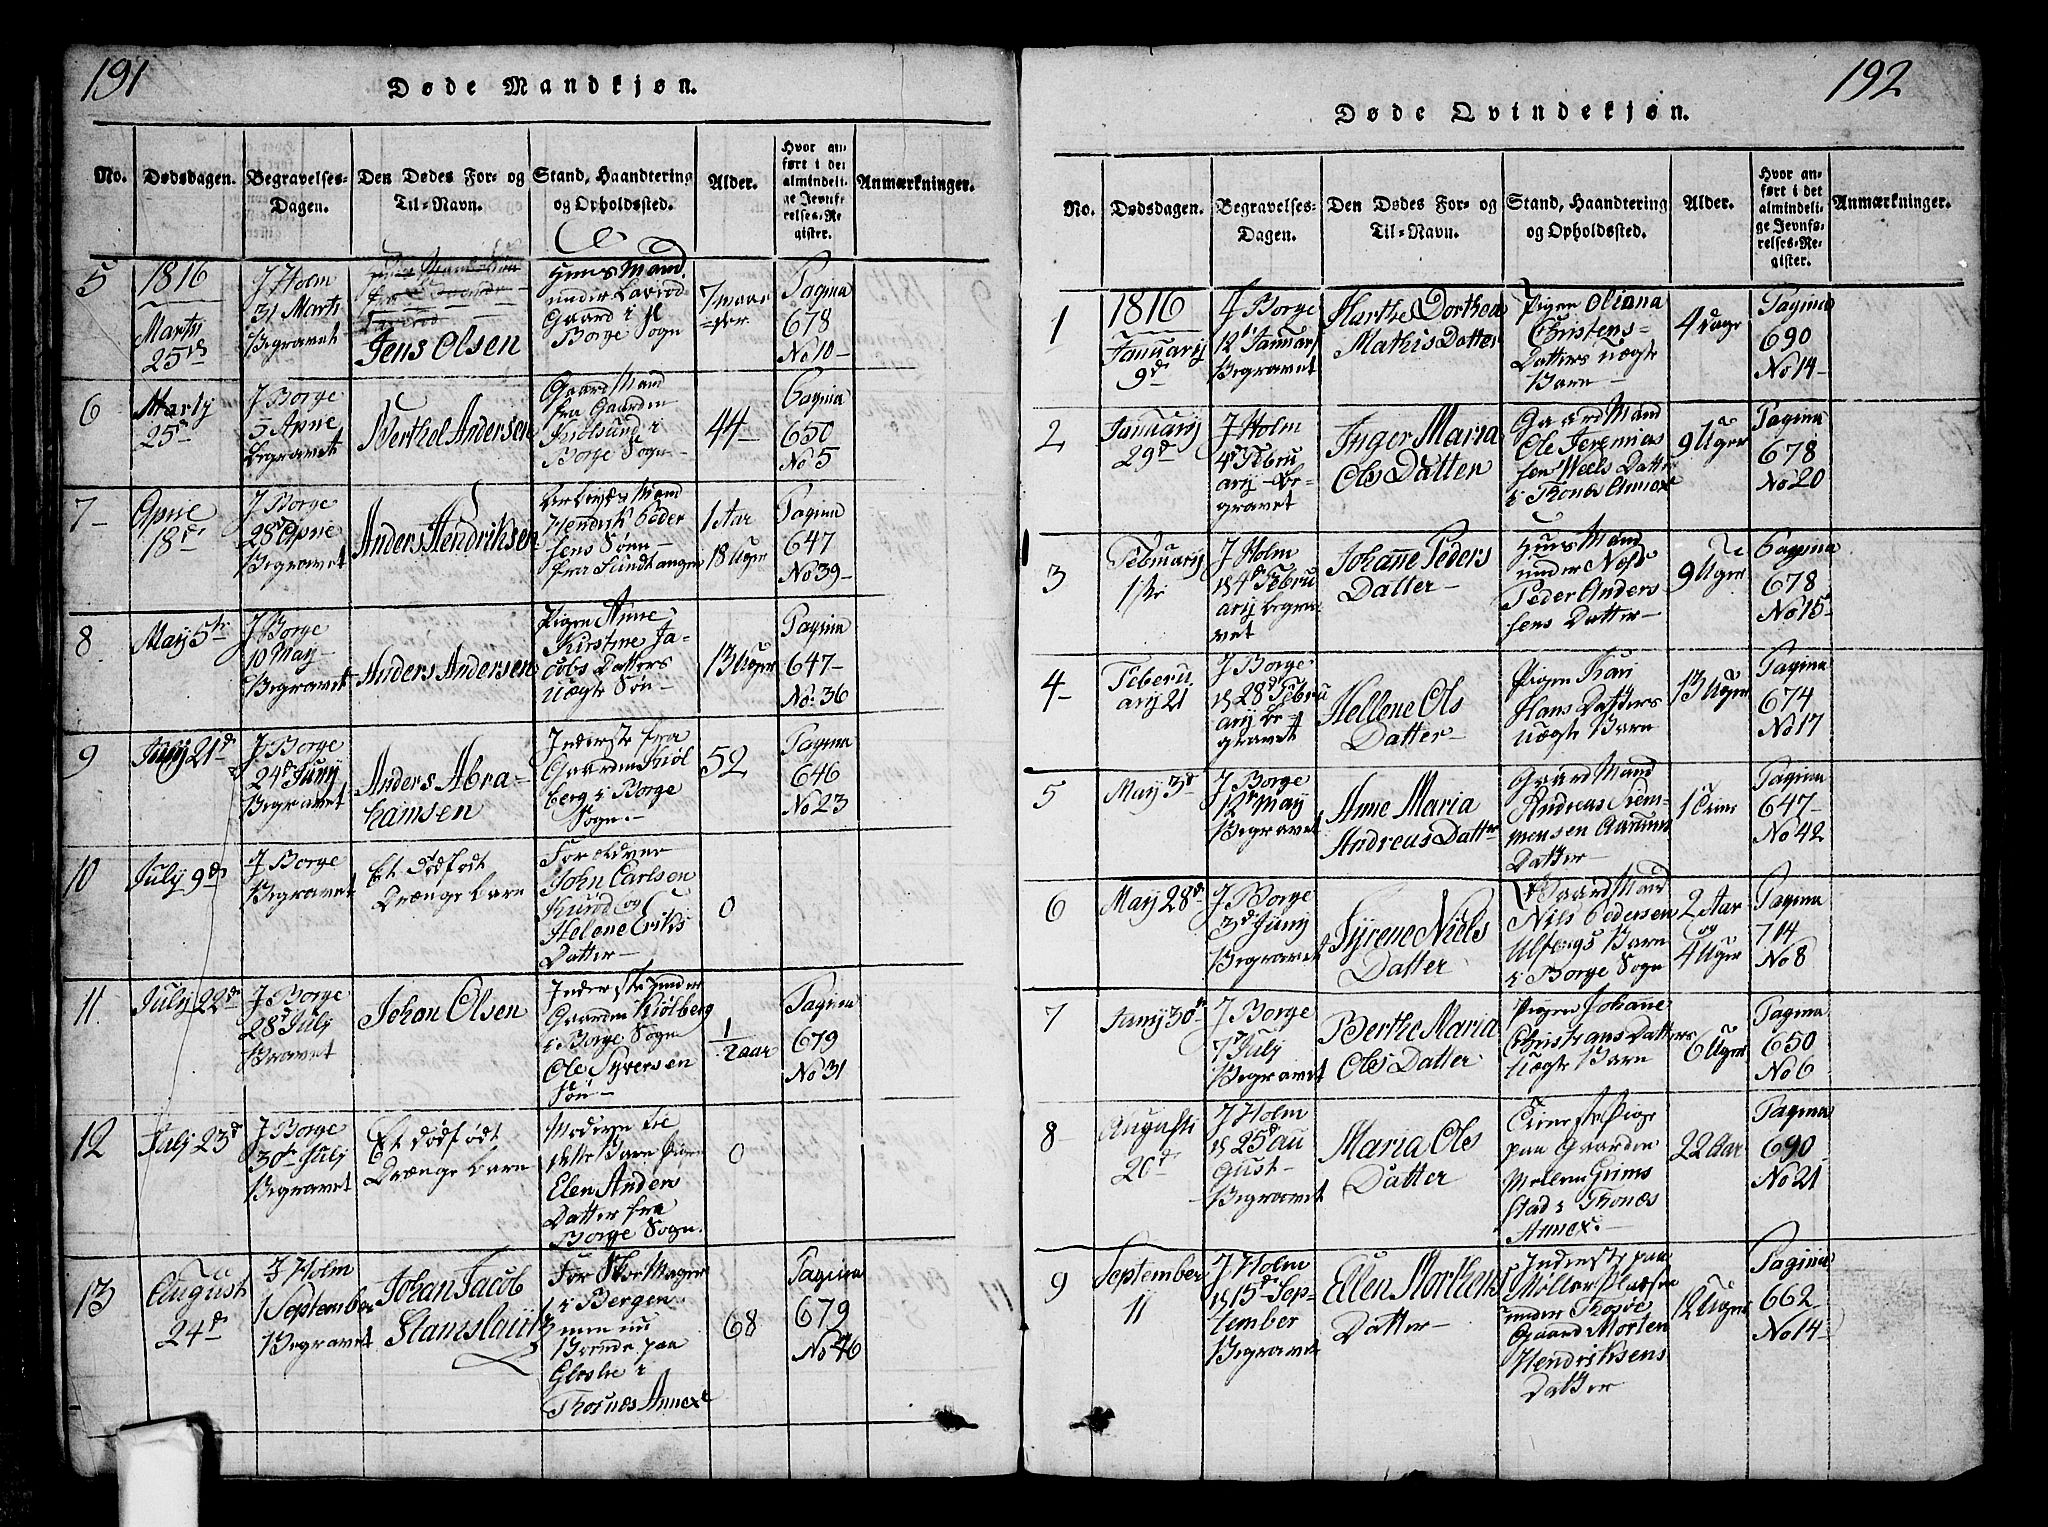 191
Døde Mandkjøn.
No.
Dødsdagen.
Begravelses-
Dagen.
Den Dødes For- og
Til-Navn.
Stand, Haandtering
og Opholdssted.
Alder.
Hvor an-
ført i det
almindeli-
ge Jevnfø-
relses-Re
gister.
Anmærkninger.
5
1816
Martij
25de
J Holm
31 Marti
Begravet
Jens Olsen
Huus Mand
under
Gaard i
Borge Sogn
Pagina
678
No 10
6
Martij
25de
J Borge
5 Aprie
begravet
Berthol Andersen
Gaard Mand
fra Gaarden
Kiølsund i
Borge Sogn
44
Pagina
650
No 5
7
Aprie
18de
J Borge
28d Aprie
Begravet
Anders Hendriksen
Hendrik Peder
sens Sønn
fra Sundtangen
1 Aar
18 Uger
Pagina
647
No 39
8
May 5te
J Borge
10 May
Begravet
Anders Andersen
Pigen Anne
Kirstine Ja-
cobs Datters
Uægte Søn
13 Uger
Pagina
647
No: 36
9
Junij 21d
J Borge
24d Junij
Begravet
Anders Abra-
hamsen
Inderste fra
Gaarden Kiøl
berg i Borge
Sogn.
52
Pagina
646
No 23
10
July 9d
J Borge
Begravet
Et dødfødt
Drænge barn
Forældrer
John Carlsen
og
Helene Eriks
Datter
0
11
July 22d
J Borge
28d Julj
Bravet
Johan Olsen
Inderste under
Gaarden Kiølberg
i Borge Sogn
Ole Syversen
Søn
1/2 aar
Pagina
679
No 31
12
Julj 23d
J Borge
30te Julj
Begravet
Et dødfødt
Drænge barn
Moderen til
dette Barn Pigen
Elen Anders
Datter fra
Borge Sogn.
0
13
August
24d
J Holm
1 September
Begravet
Johan Jacob
Før Skoe Mager
i Bergen
men nu
Boende paa
i
Thorsnæs Annex
68
Pagina
679
No 46
192
Døde Qvindekjøn.
No.
Dødsdagen.
Begravelses-
Dagen.
Den Dødes For- og
Til-Navn.
Stand, Haandtering
og Opholdssted.
Alder.
Hvor an-
ført i det
almindeli-
ge Jevnfø-
relses-Re-
gister.
Anmærkninger.
1
1816
Januarij
9d
J Borge
12 Januari
Begravet
Marthe Dorthea
Mathis Datter
Pigen Oliana
Christens-
Datters uægte
Barn
4 Dage
Pagina
690
No 14
2
Januarij
29d
J Holm
4d Febru
arij Be-
gravet
Inger Maria
Ols Datter
Gaard Mand
Ole Jeremias
sen Datter
i Annex
9 Uger
Pagina
678
No 20
3
Februarij
1ste
J Holm
d 4d Febru
arij begra
vet
Johanne Peders
Datter
Huus Mand
under
Peder Anders
sens Datter
9 Uger
Pagina
678
No 15
4
Feberu
arij 21
J Borge
d 28d Febru
arij be-
gravet
Hellene Ols
Datter
Pigen Kari
Hans Datters
Uægte Barn
13 Uger
Pagina
674
No 17
5
May 3d
J Borge
12te May
Begravet
Anne Maria
Andreas Datter
Gaard Mand
Andreas
Datter
Pagina
647
No 42
6
May 28d
J Borge
3d Junij
Begravet
Tyrene Niels
Datter
Gaard Mand
Nils Pedersen
Barn
i Borge Sogn
2 Aar
og
4 Uger
Pagina
714
No 8
7
Junij 30d
J Borge
7d Julj
Begravet
Berthe Maria
Ols Datter
Pigen Johanne
Christians Datters
Uægte Barn
6 Uger
Pagina
650
No 6
8
Augusti
20d
J Holm
d 25d au
gust
Begravet
Maria Ols
Datter
Tieneste Pige
paa Gaarden
Grims
stad i Thorsnæs
Annex.
22 Aar
Pagina
690
No 21
9
September
11
J Holm
d 15d Sep-
tember
Begravet
Ellen Morthens
Datter
Inderste paa
Møller Pladsen
under
Gaard Morten
Hendriksens
Datter
12 Uger
Pagina
662
No 14